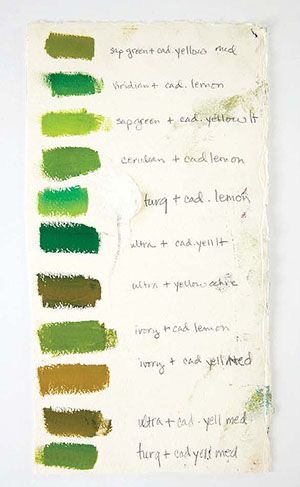 sap green + cad. yellow med
viridian + cad. lemon
sap green + cad. yellow lt
cerulean + cad lemon
turq + cad. lemon
ultra + cad. yell lt
ultra + yellow ochre
ivory + cad lemon
ivory + cad yell med
ultra + cad. yell med
turq + cad yell med